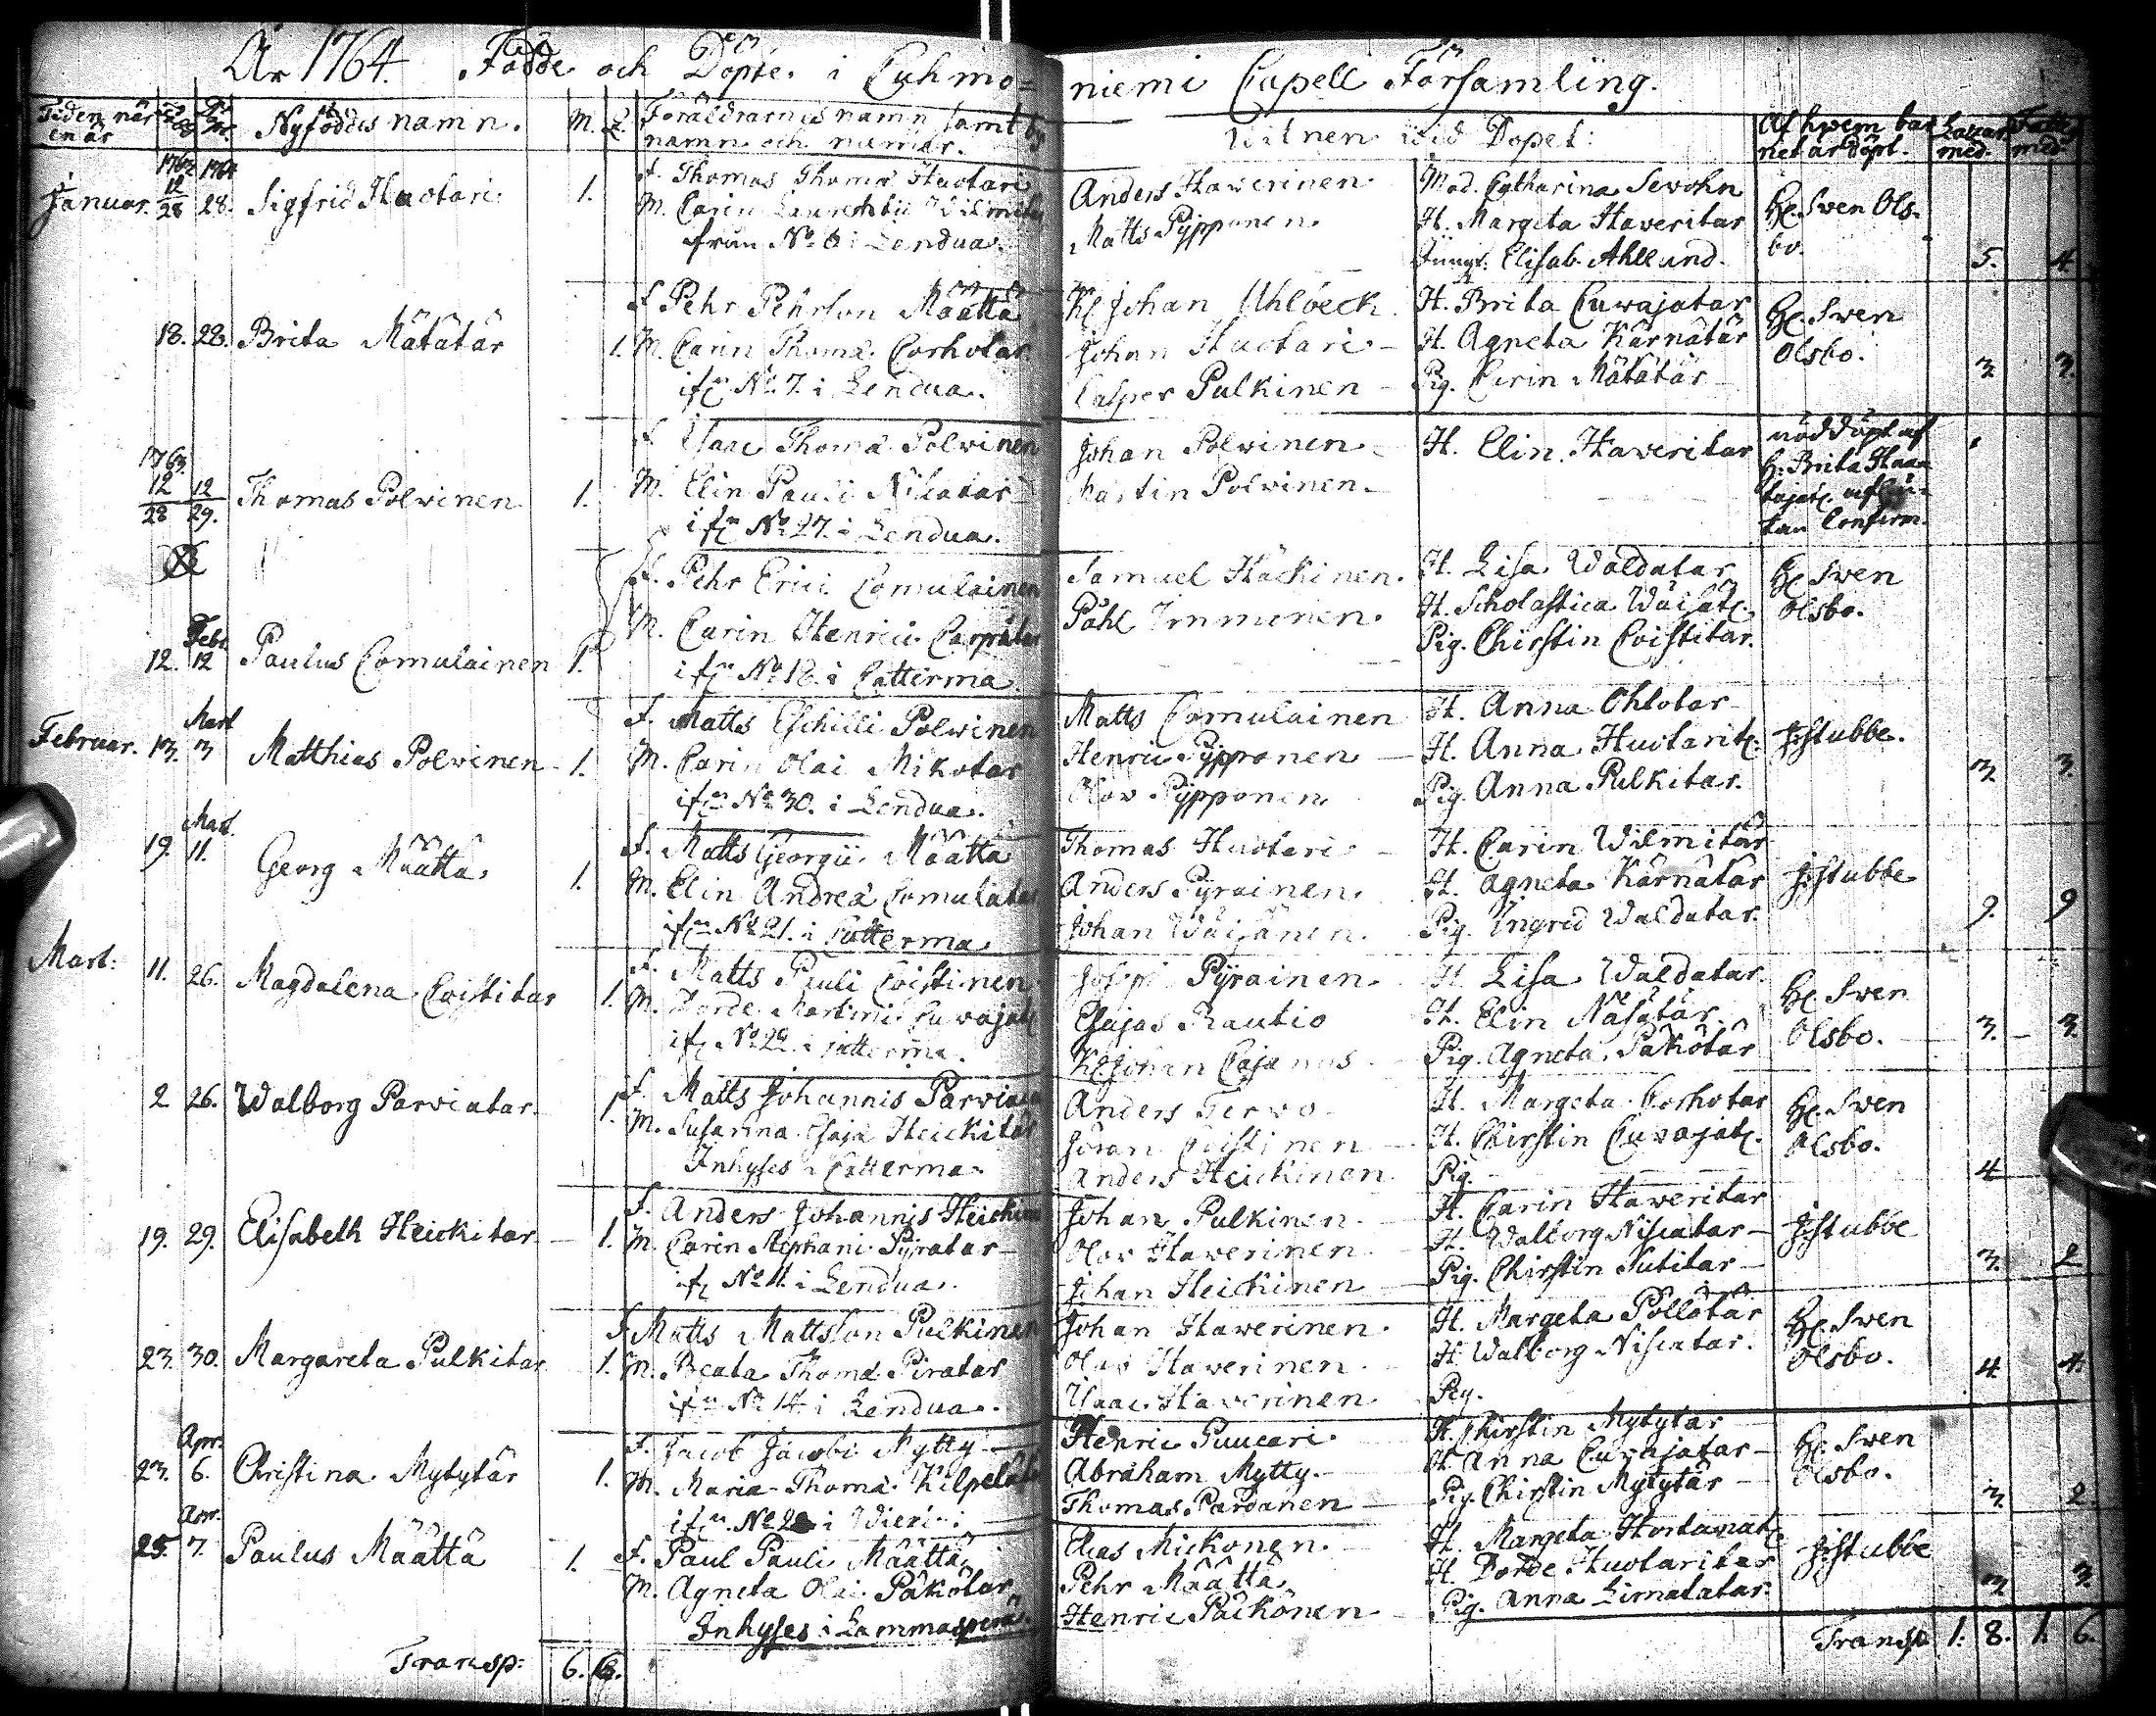 År 1764. Födde och Döpte i Cuhmo=
niemi Capell Församling.
Tiden när
en är
Nyföddes namn.
M. Q.
Föräldrarnes namn samt by
namn och numer.
Witnen wid Dopet:
Af hwem bar
net är döpt.
med.
med
Januar. 1763 12/28 1764 28. Sigfrid Huotari 1.
f. Thomas Thomæ Huotari
M. Carin Laurentii Wilmitar
från No 6 i Lendua.
Anders Hawerinen
Matts Pypponen.
Mad. Catharina Sewohn
H. Margeta Haweritar
Jungf. Elisab. Ahllund.
H. Swen Ols-
bo.
5. 4
18. 28. Brita Mätätär 1.
f. Pehr Pehrson Määttä
M. Carin Thomæ Corhotar
if No 7. i Lendua.
Kl Johan Uhlbeck
Johan Huotari
Casper Pulkinen
H. Brita Cuwajatar
H. Agneta Kärnätär
Pig. Carin Mätätär
H. Swen
Olsbo.
3 3.
1763 12/28 12/29. Thomas Polwinen 1.
f. Isaac Thomæ Polwinen
M. Elin Pauli Nikatar
if No 27. i Lendua.
Johan Polwinen
Martin Polwinen
H. Elin Haweritar
nöddöpt af
H. Brita
Confirm.
12. Febr 12 Paulus Comulainen 1.
f. Pehr Erici Comulainen
M. Carin Henrici
if No 18. i Catterma
Samuel Häckinen.
Påhl Immonen.
H. Lisa Waldatar
H. Scholastica Wäisät.
Pig. Chirstin Coistitar.
H. Swen
Olsbo.
Februar. 13. Mart 3 Matthias Polwinen 1.
f. Matts Eschilli Polwinen
M. Carin Olai Mikotar
if No 30. i Lendua.
Matts Comulainen
Henric Pypponen
Olov Pypponen
H. Anna Ohlotar
H. Anna Huotarit.
Pig. Anna Pulkitar.
Hstubbe.
3 3.
19. Mart. 11. Georg Määttä 1.
f. Matts Georgii Määttä
M. Elin Andreæ Comulatar
if No 21. i Catterma
Thomas Huotari
Anders Pyrainen.
Johan Wäisänen.
H. Carin Wilmitar
H. Agneta Kärnätär
Pig. Ingred Waldatar.
Hstubbe
9. 9
Mart: 11. 26. Magdalena Coistitar 1.
f. Matts Pauli Coistinen
M. Dorde Martini Cuwajat.
if No 29. i Catterma.
Josep Pyrainen
Esajas Rautio
Kl Johan Cajanus
H. Lisa Waldatar.
H. Elin Näsätär.
Pig. Agneta Päkötär
H. Swen
Olsbo.
3. 3.
2 26. Walborg Parviatar. 1.
f. Matts Johannis Parviain
M. Susanna Esajæ Heickitar
Inhyses i Catterma
Anders Terwo
Jöran Coistinen
Anders Heickinen
H. Margeta Corhotar
H. Chirstin Cuwajat.
Pig.
H. Swen
Olsbo.
4
19. 29. Elisabeth Heickitar 1.
f. Anders Johannis Heickin
M. Carin Stephani Pyratar
if No 11. i Lendua.
Johan Pulkinen
Olov Hawerinen
Johan Heickinen
H. Carin Haweritar
H. Walborg Niscatar
Pig. Chirstin Sutitar
Hstubbe
3. 2
23. 30. Margareta Pulkitar 1.
f. Matts Mattsson Pulkinen
M. Beata Thomæ Piratar
if No 14. i Lendua.
Johan Hawerinen
Olov Hawerinen
Isaac Hawerinen
H. Margeta Pöllätär
H. Walborg Niscatar.
Pig.
H. Swen
Olsbo.
4 4.
23. Apr. 6. Christina Mytytär 1.
f. Jacob Jacobi Mytty
M. Maria Thomæ Kilpelät
if No i Wieri
Henric Puucari
Abraham Mytty.
Thomas Pardanen
H. Chirstin Mytytär
H. Anna Cuwajatar
Pig. Chirstin Mytytär
H. Swen
Olsbo.
3. 2.
25. Apr. 7. Paulus Määttä 1.
f. Paul Pauli Määttä
M. Agneta Olai Päkötar
Inhyses i Lammasperä.
Elias Mickonen.
Pehr Määttä
Henric Päckönen
H. Margeta Hortanat.
H. Dorde Huotaritar
Pig. Anna Limatatar.
Hstubbe
3 3.
Transp: 6. 6.
Transp 1. 8. 1. 6.